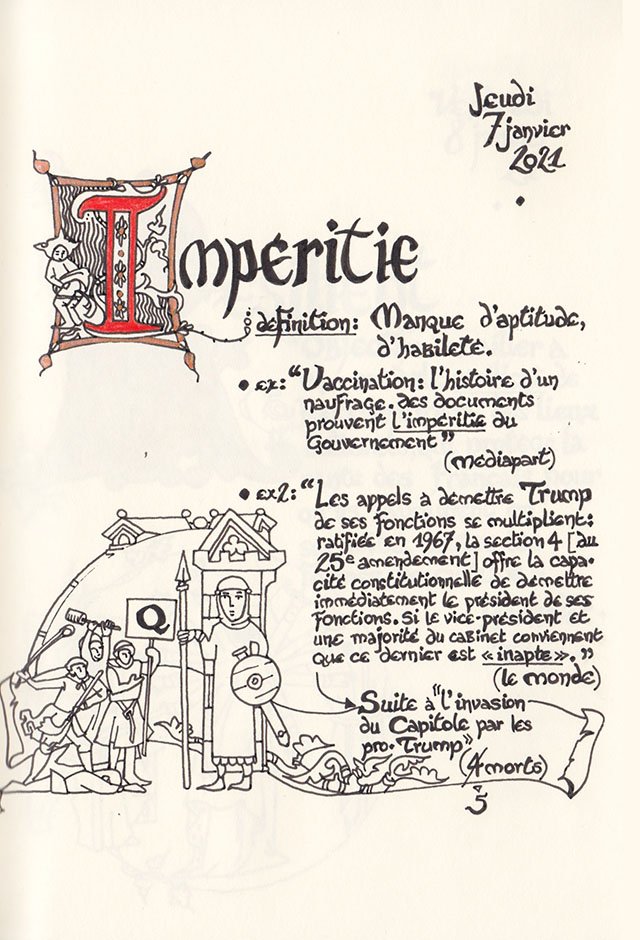 Jeudi
7 janvier
2021
Imperitie
définition: Manque d'aptitude,
d'habileté.
• ex: "Vaccination: l'histoire d'un
naufrage. des documents
prouvent l'impéritie du
Gouvernement"
(Médiapart)
• ex2: "Les appels a démettre Trump
de ses fonctions se multiplient:
ratifiée en 1967, la section 4 [du
25e amendement] offre la capa-
cité constitutionnelle de démettre
immédiatement le président de ses
fonctions. Si le vice-président et
une majorité du cabinet conviennent
que ce dernier est «inapte»."
(le monde)
Q
Suite à "l'invasion
du Capitole par les
pro-Trump"
(4 morts)
5